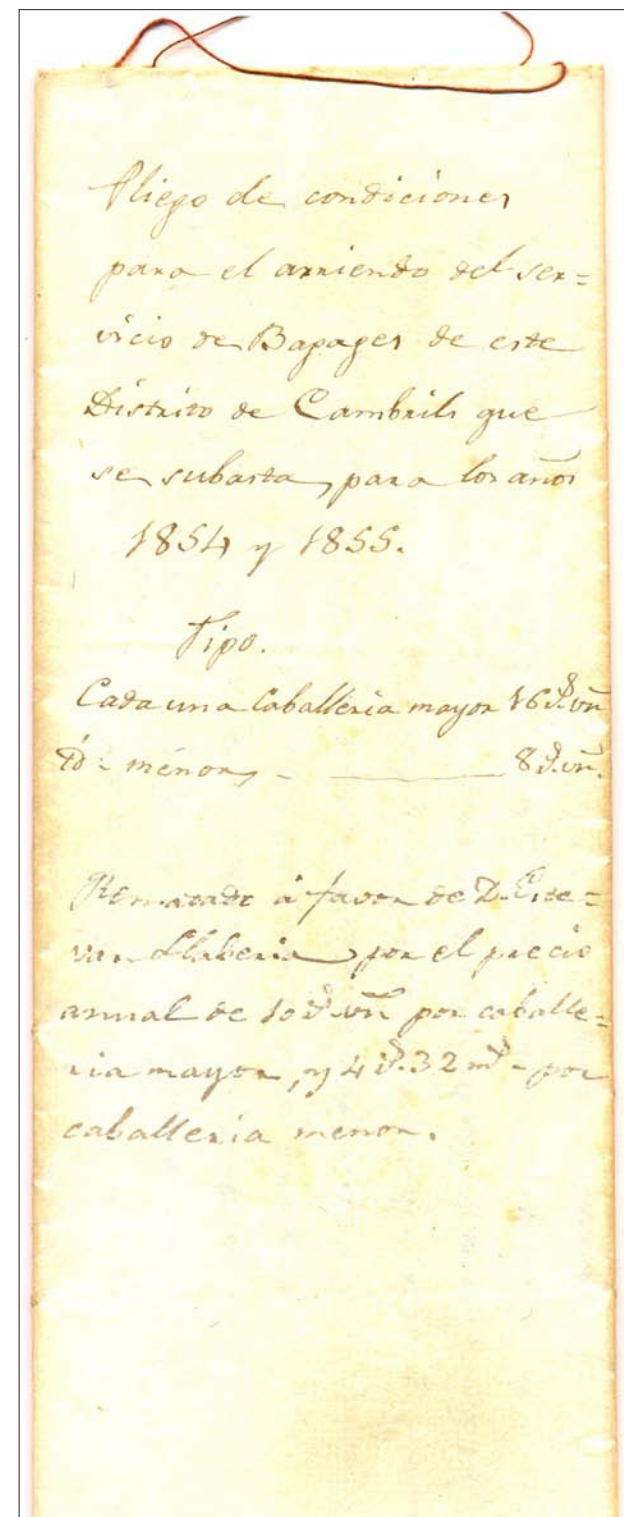 Pliego de condiciones
para el arriendo del ser=
vicio de Bagages de este
Distrito de Cambrils que
se subasta, para los años
1854 y 1855.
Tipo.
Cada una Caballeria mayor 16 rs. vn
id. menor, - 8 rs. vn.
Rematado á favor de D. Este=
van Llaberia por el precio
annual de 10 rs. vn por caballe=
ria mayor, y 4 rs. 32 ms. - por
caballeria menor.